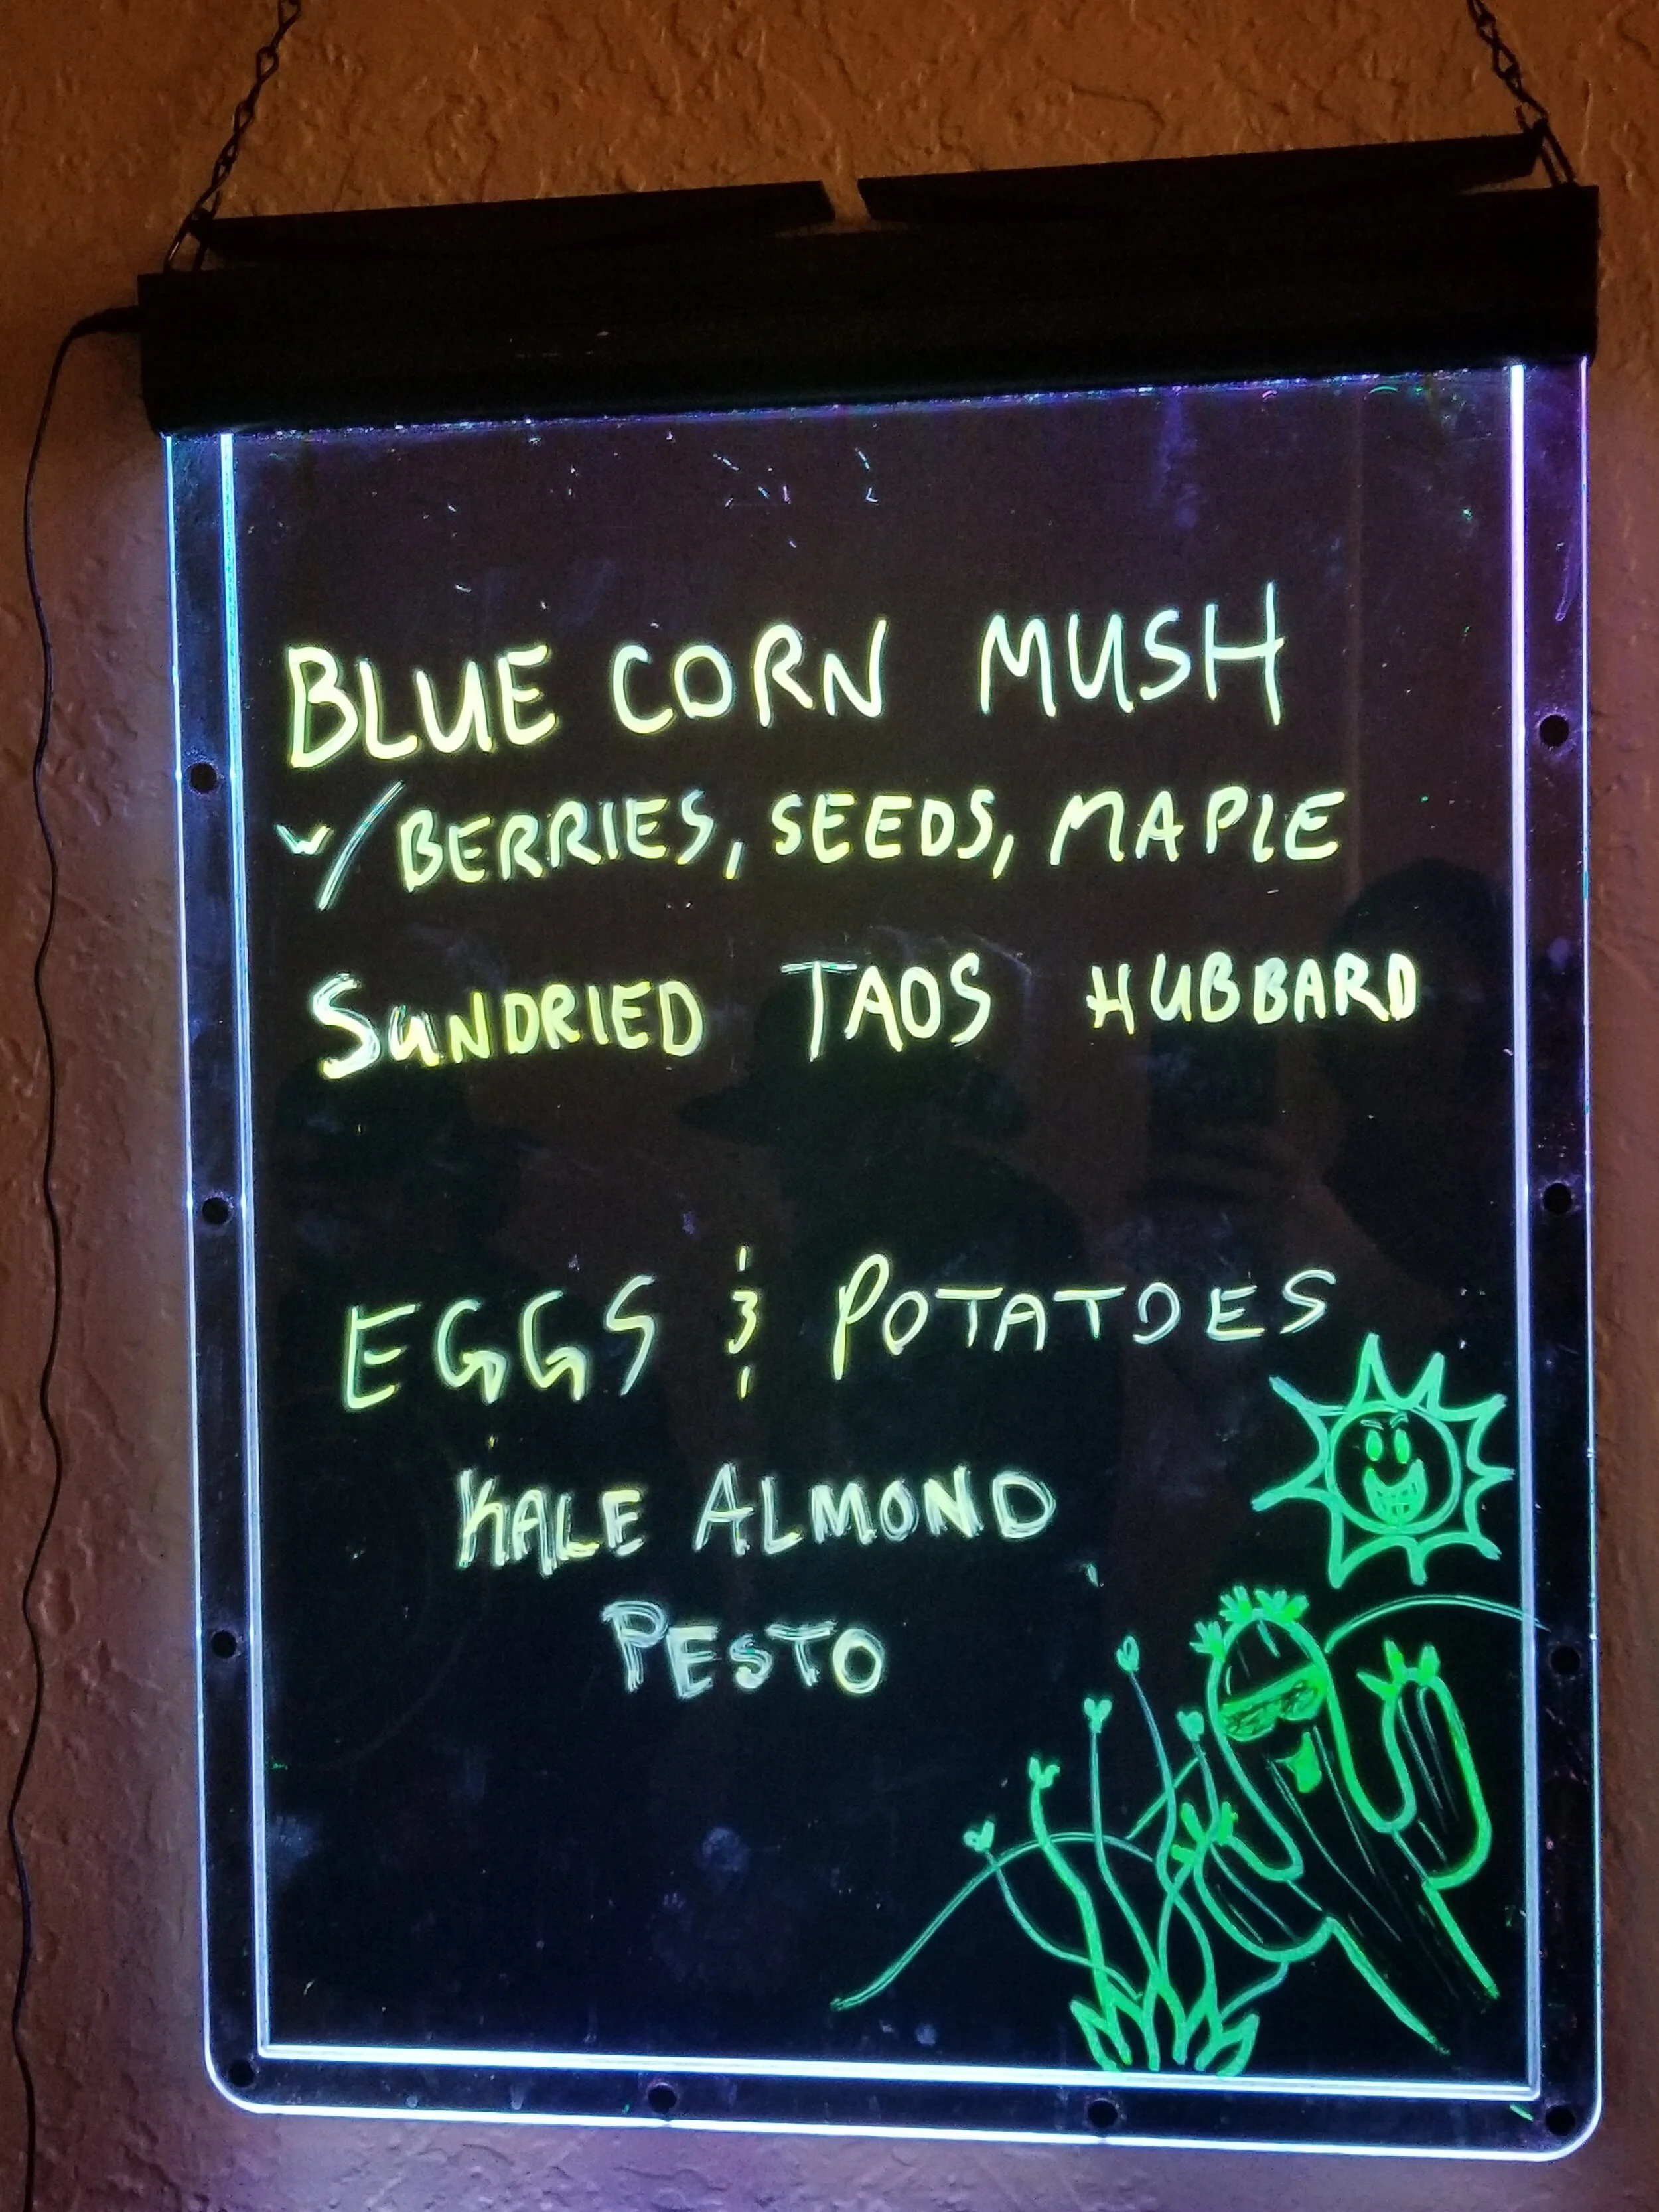 BLUE CORN MUSH
w/BERRIES, SEEDS, MAPLE
SUNDRIED TAOS HUBBARD
EGGS & POTATOES
KALE ALMOND
PESTO